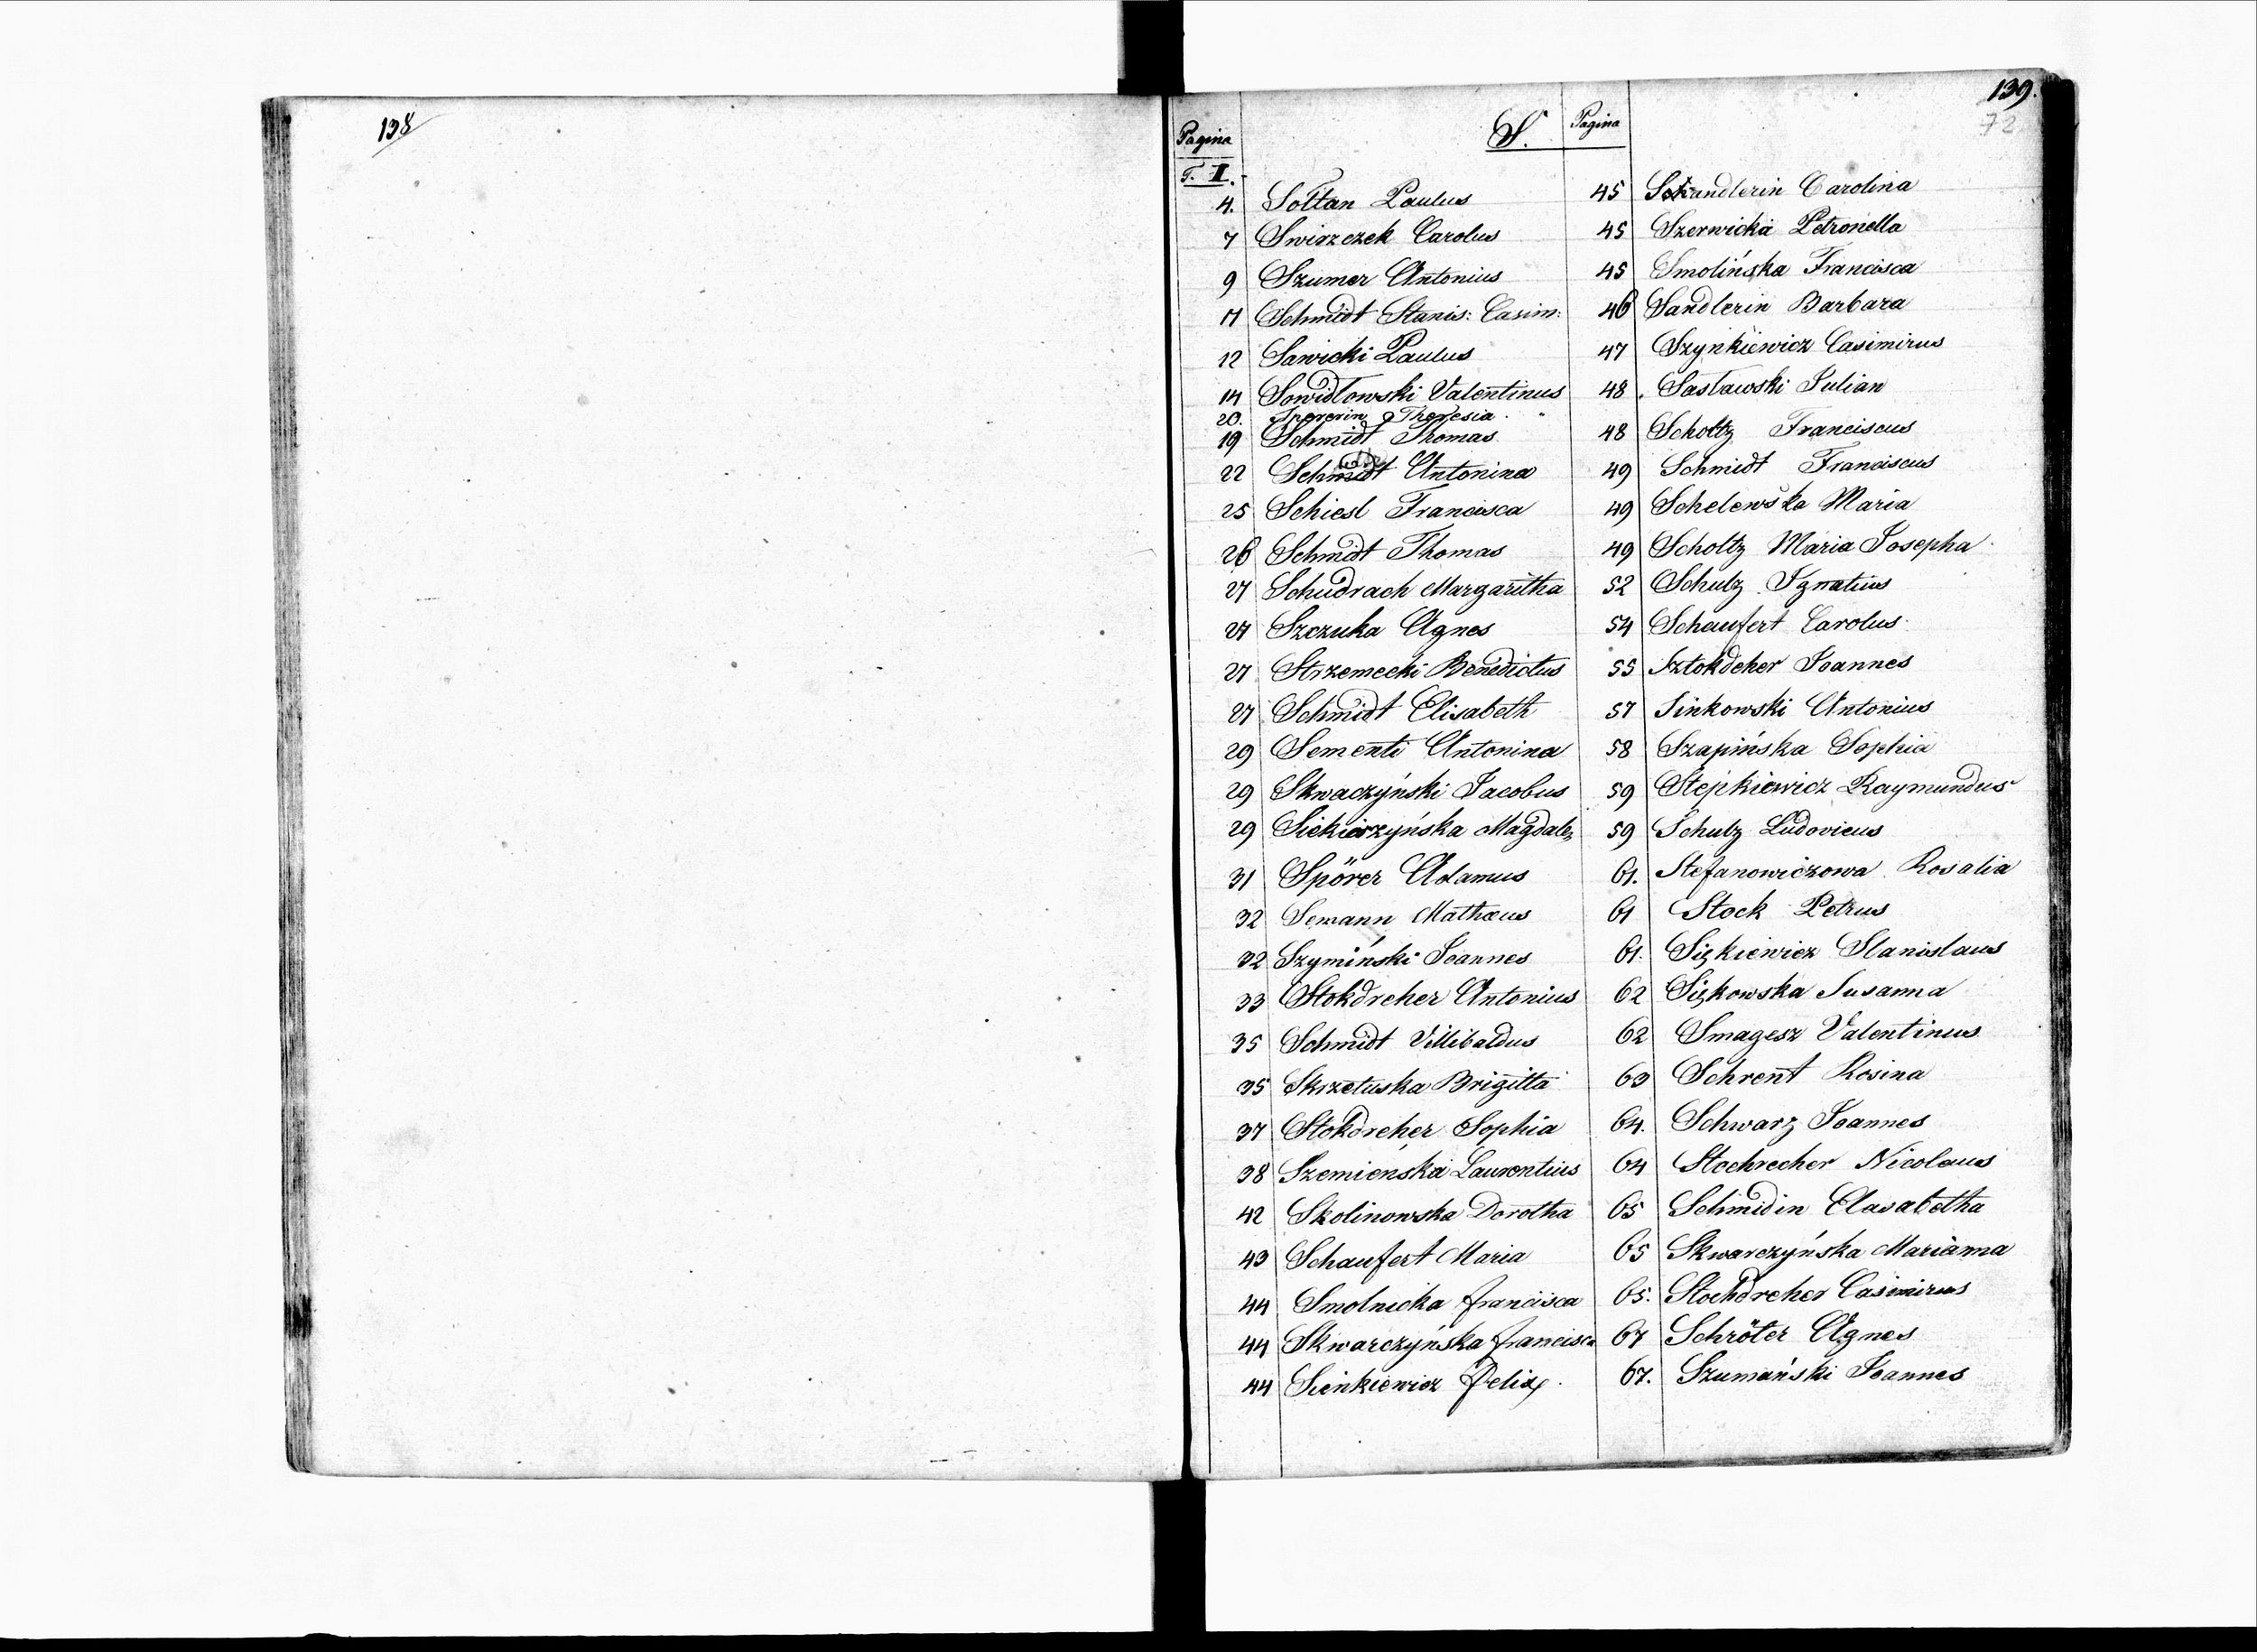 138
139.
72
Pagina
S.
Pagina
T. I.
4. Sołtan Paulus
7 Swirzczek Carolus
9 Szumer Antonius
11 Schmidt Stanis: Casim:
12 Sawicki Paulus
14 Sowidłowski Valentinus
20. Spererin Theresia "
19 Schmidt Thomas
22 Schmidt Antonina
25 Schiesl Francisca
26 Schmidt Thomas
27 Schudrach Margaritha
27 Szczuka Agnes
27 Strzemecki Benedictus
27 Schmidt Elisabeth
29 Sementi Antonina
29 Skwaczyński Jacobus
29 Siekierzyńska Magdale,
31 Spörer Adamus
32 Semann Mathæus
32 Szymiński Joannes
33 Stokdreher Antonius
35 Schmidt Villibaldus
35 Skrzetuska Brigitta
37 Stokdreher Sophia
38 Szemieńska Laurentius
42 Skolinowska Dorotha
43 Schaufert Maria
44 Smolnicka francisca
44 Skwarczyńska francisca
44 Sienkiewicz felix.
45 Carolina
45 Szerwicka Petronella
45 Smolińska Francisca
46 Sandlerin Barbara
47 Szynkiewicz Casimirus
48. Sasławski Julian
48 Scholtz Franciscus
49 Schmidt Franciscus
49 Schelewska Maria
49 Scholtz Maria Josepha
52 Schulz Ignatius
54 Schaufert Carolus
55 Sztokdeher Joannes
57 Sinkowski Antonius
58 Szapińska Sophia
59 Stepkiewicz Raymundus
59 Schulz Ludovicus
61. Stefanowiczowa Rosalia
61 Stock Petrus
61. Siękiewicz Stanislaus
62 Siękowska Susanna
62 Smagesz Valentinus
63 Schrent Rosina
64. Schwarz Joannes
64 Stochrecher Nicolaus
65 Schmidin Elasabetha
65 Skwarczyńska Marianna
65. Stochdreher Casimirus
67 Schröter Agnes
67. Szumański Joannes